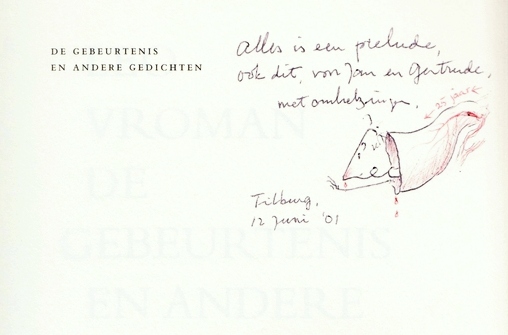 DE GEBEURTENIS
EN ANDERE GEDICHTEN
Alles is een prelude,
ook dit, voor Jan en Gertrude,
met omhelzingen,
25 jaar
Tilburg,
12 Juni '01
ROMAN
DE
GEBEURTENIS
EN ANDERE